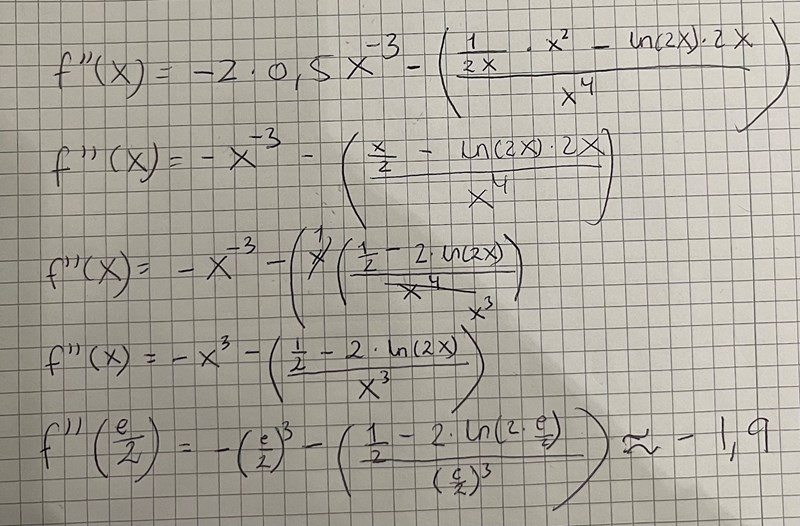 f''(x) = -2 · 0,5x^{-3} - ( (1/(2x) · x^2 - ln(2x) · 2x) / x^4 )
f''(x) = -x^{-3} - ( (x/2 - ln(2x) · 2x) / x^4 )
f''(x) = -x^{-3} - ( x 1 ( (1/2 - 2 · ln(2x)) / x^4 x^3 )
f''(x) = -x^3 - ( (1/2 - 2 · ln(2x)) / x^3 )
f''(e/2) = -(e/2)^3 - ( (1/2 - 2 · ln(2 · e/2)) / (e/2)^3 ) ≈ -1,9